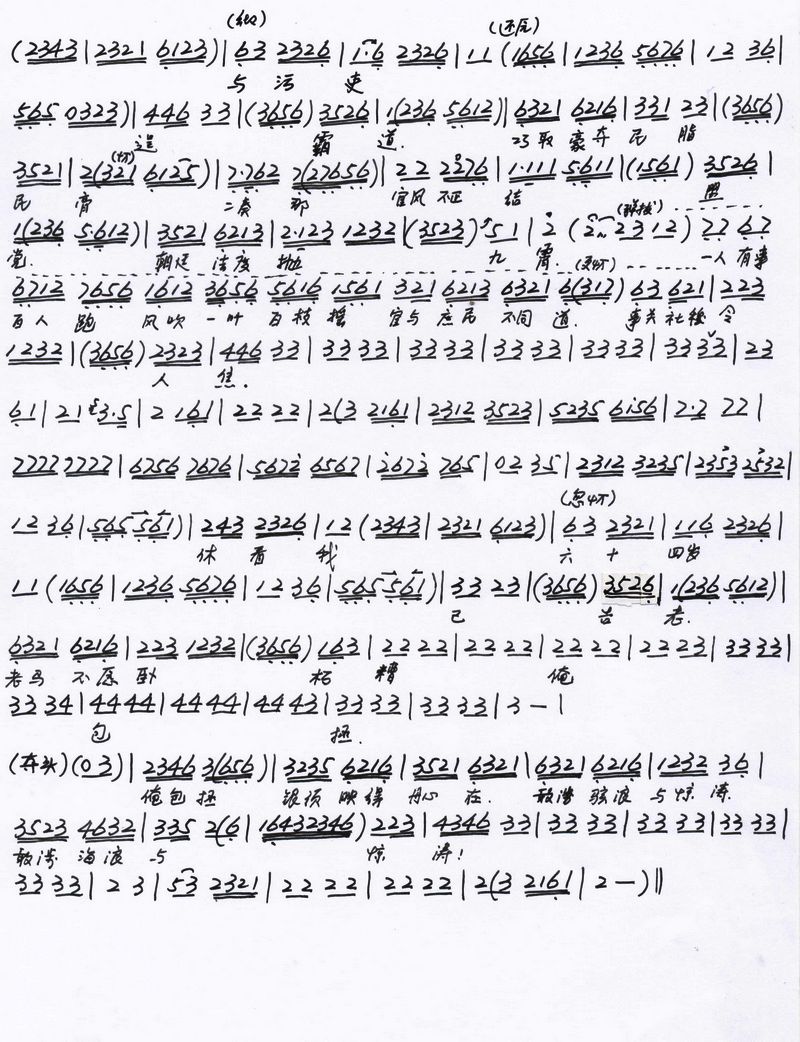 (2343|2321 6123)|63 2326|1·6 2326|11(1656|1236 5676|12 36|
与 污 吏
565 0323)|446 33|(3656) 3526|1(236 5612)|6321 6216|331 23|(3656)
逞 霸 道. 巧取豪夺 民 脂
3521|2(321 6125)|7·762 7(27656)|22 2276|1·111 5611|(1561) 3526|
民 膏 二奏 那 官风不正 结 盟
1(236 5612)|3521 6213|2·123 1232|(3523) 51|2 (2~2312) 77 67
党. 朝廷 法度 抛 九 霄. 一人有事
6712 7656 1612 3656 5616 1561 321 6213 6321 6(317) 63 621|223
百人 跑 风吹 一叶 百枝 摇 官与 庶民 不同 道. 事关社稷 令
1232|(3656) 2323|446 33|33 33|33 33|33 33|33 33|33 33|23
人 焦.
61|21 3·5|2 161|22 22|2(3 2161|2312 3523|5235 6156|2·2 22|
7777 7777|6756 7676|5672 6567|2672 765|02 35|2312 3235|2353 2532|
12 36|565 561)|243 2326|12 (2343|2321 6123)|63 2321|116 2326|
休 看 我 六 十 四岁
11 (1656|1236 5676|12 36|565 561)|33 23|(3656) 3526|1(236 5612)|
已 苍 老.
6321 6216|223 1232|(3656) 163|22 22|22 22|22 22|22 23|33 33|
老马 不愿 卧 枥 糟 俺
33 34|44 44|44 44|44 43|33 33|33 33|3 —|
包 拯.
(夺头)(03)|2346 3(656)|3235 6216|3521 6321|6321 6216|1232 36|
俺包 拯 银须 映得 丹心 在. 敢蹚 骇浪 与 惊 涛.
3523 4632|335 2(6|16432346) 223|4346 33|33 33|33 33|33 33|
敢蹚 海浪 与 惊 涛!
33 33|2 3|53 2321|22 22|22 22|2(3 2161|2 —)‖